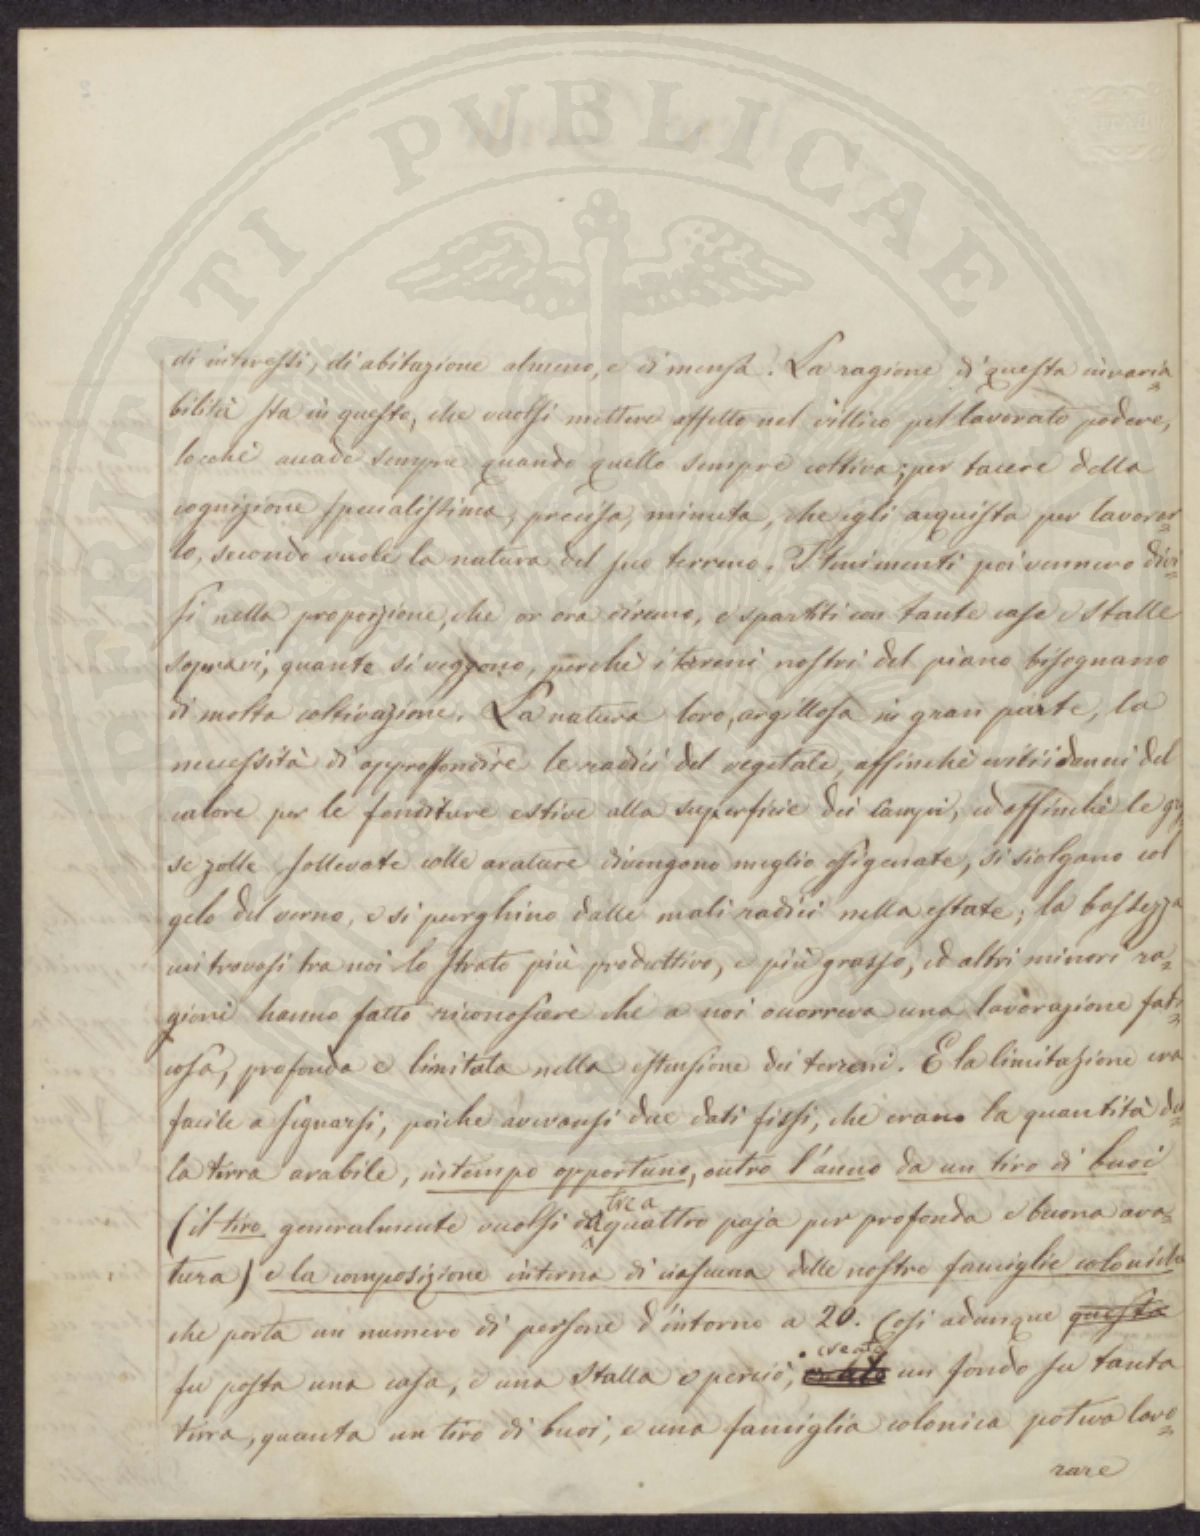 PERITATI PVBLICAE
di interessi, di abitazione almeno, e di mensa. La ragione di questa invaria=
bilità sta in questo, che vuolsi mettere affetto nel villico pel lavorato podere,
locchè accade sempre quando quello sempre coltiva; per tacere della
cognizione specialissima, precisa, minuta, che egli acquista per lavorar=
lo, secondo vuole la natura del suo terreno. I tenimenti poi vennero divi=
si nella proporzione, che or ora diremo, e spartiti con tante case e stalle
sopravi, quante si veggono, perchè i terreni nostri del piano bisognano
di molta coltivazione. La natura loro, argillosa in gran parte, la
necessità di approfondire le radici del vegetale, affinchè eviti i danni del
calore per le fenditure estive alla superficie dei campi, ed affinchè le
se zolle sollevate colle arature divengono meglio ossigenate, si sciolgano col
gelo del verno, e si purghino dalle mali radici nella estate; la bassezza
cui trovasi tra noi lo strato più produttivo, e più grasso, ed altri minori ra=
gioni hanno fatto riconoscere che a noi occorreva una lavorazione fati=
cosa, profonda e limitata nella estensione dei terreni. E la limitazione era
facile a segnarsi, poichè avevansi due dati fissi, che erano la quantità del
la terra arabile, in tempo opportuno, entro l'anno da un tiro di buoi
(il tiro generalmente vuolsi di tre a quattro paja per profonda e buona ara=
tura) e la composizione interna di ciascuna delle nostre famiglie coloniche
che porta un numero di persone d'intorno a 20. Così adunque questa
fu posta una casa, e una stalla e perciò, creato un fondo su tanta
terra, quanta un tiro di buoi, e una famiglia colonica poteva lavo=
rare